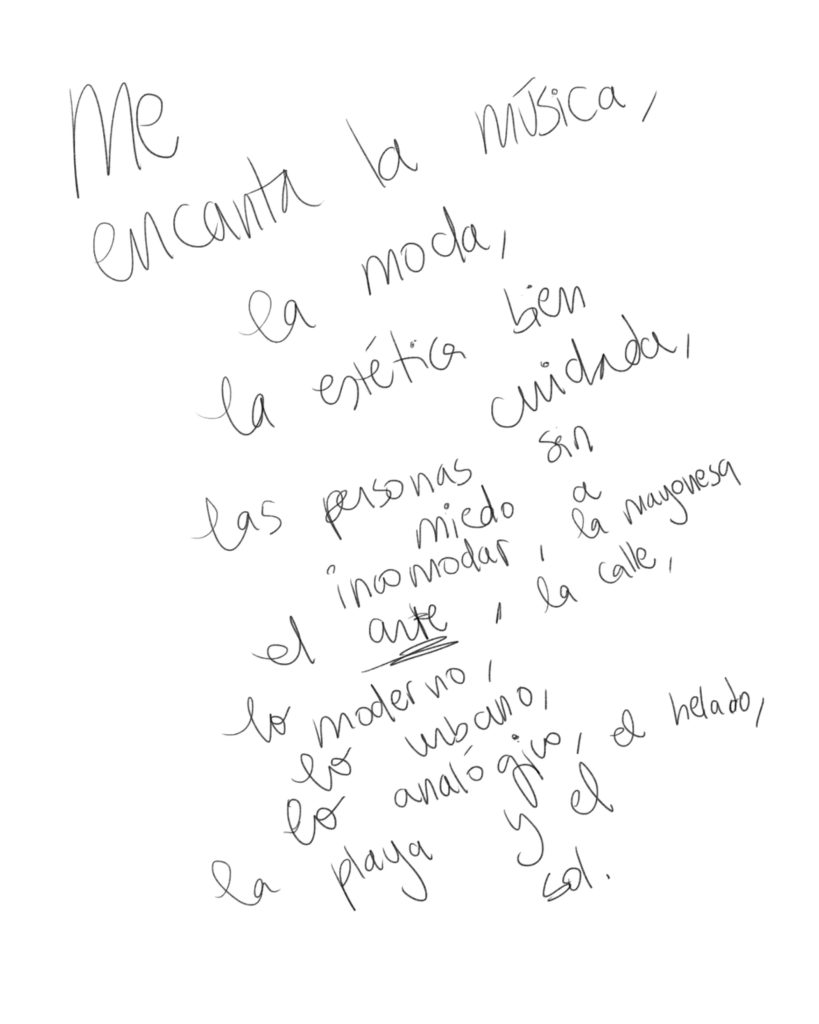 Me
encanta la música,
la moda,
la estética bien
cuidada,
las personas sin
miedo a
incomodar, la mayonesa
el arte, la calle,
lo moderno,
lo urbano,
lo analógico, el helado,
la playa y el
sol.